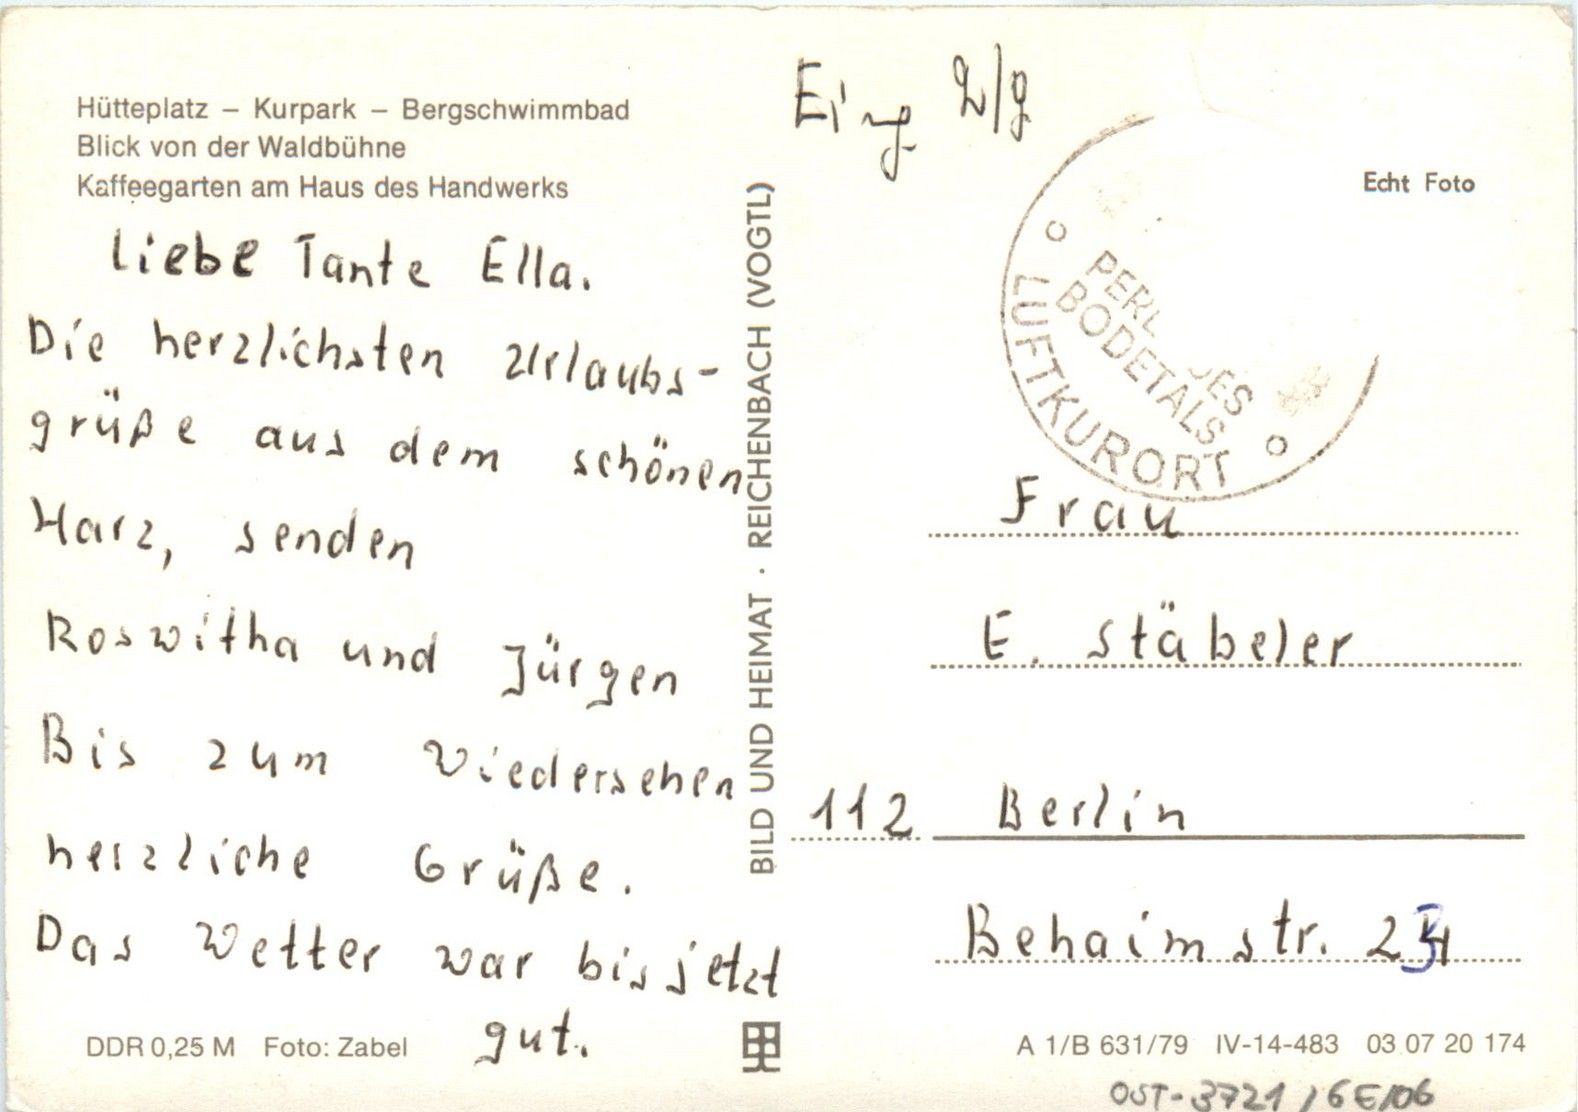 Hütteplatz – Kurpark – Bergschwimmbad
Blick von der Waldbühne
Kaffeegarten am Haus des Handwerks
Liebe Tante Ella.
Die herzlichsten Urlaubs-
grüße aus dem schönen
Harz, senden
Roswitha und Jürgen
Bis zum Wiedersehen
herzliche Grüße.
Das Wetter war bis jetzt
gut.
DDR 0,25 M Foto: Zabel
BILD UND HEIMAT · REICHENBACH (VOGTL)
Eing. 2/9
Echt Foto
PERL DES
BODETALS
LUFTKURORT
Frau
E. Stäbeler
112 Berlin
Behaimstr.
A 1/B 631/79 IV-14-483 03 07 20 174
OST-3721/6E/06